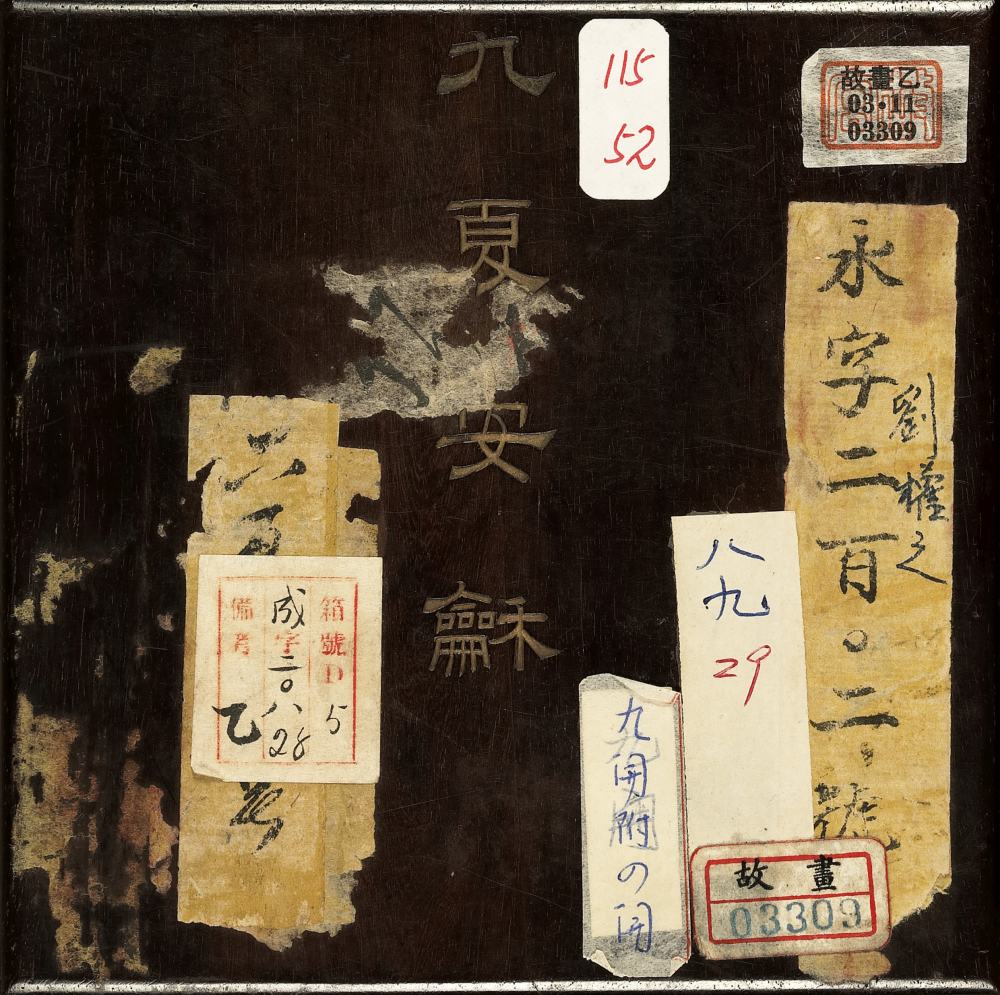 九夏安龢
115
52
故畫乙
03•11
03309
永字二百〇二號
劉權之
八九
29
九開附の開
故畫
03309
箱號D5
成字二〇八28
備考 乙